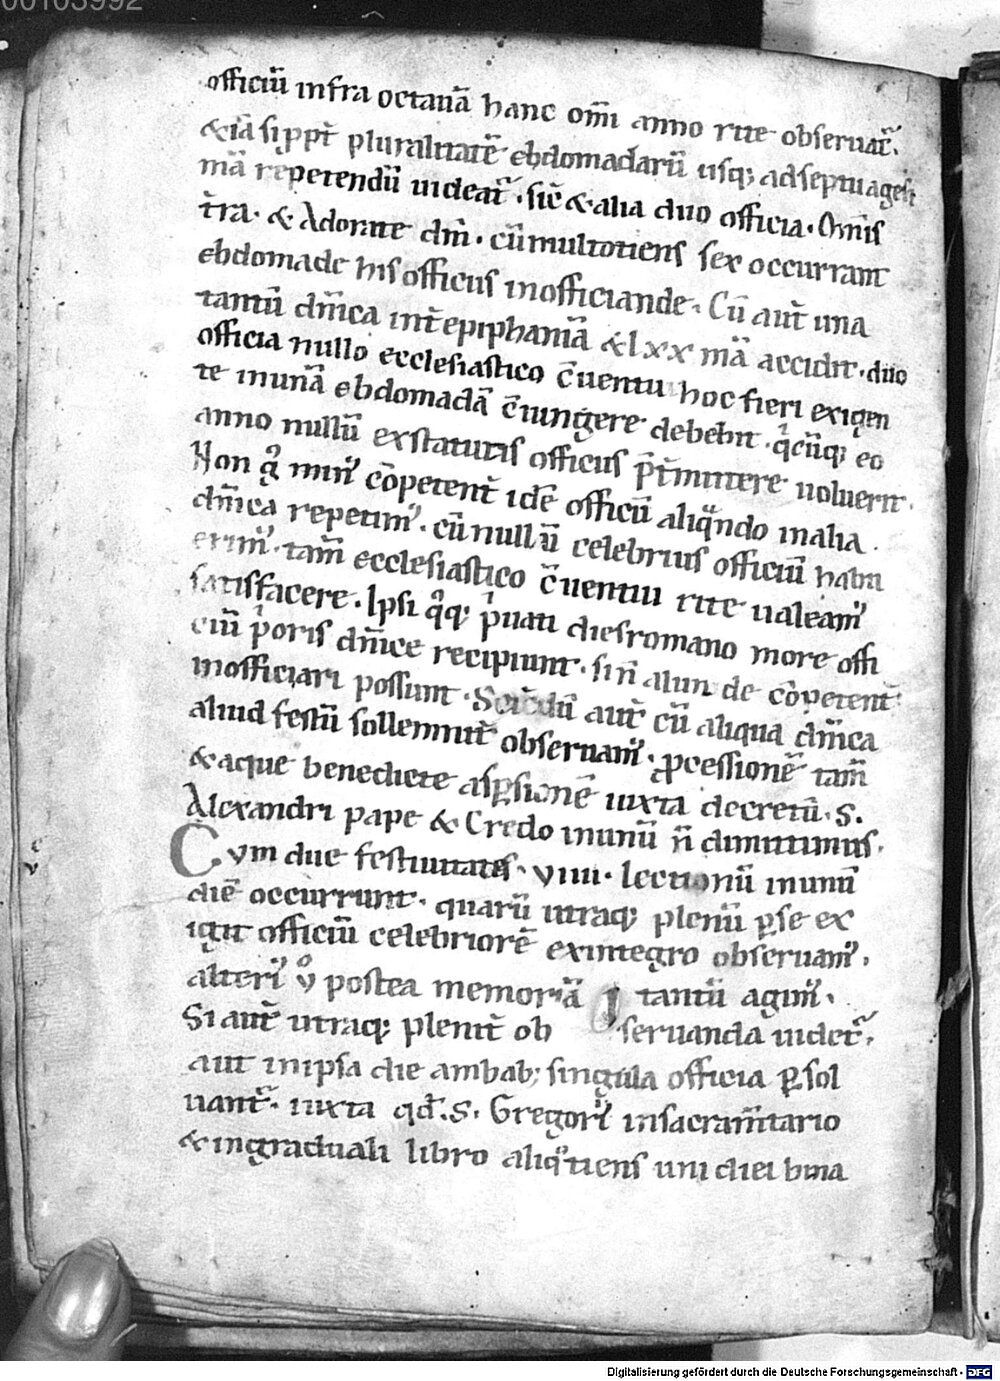 00103992
officiū infra octauā hanc om̄i anno rite obseruat̄.
&iā si ꝓpt̄ pluralitatē ebdomadarū usq; adseptuagesi
mā repetendū uideat̄. sic̄ &alia duo officia. Om̄is
t̄ra. & Adorate dm̄. cū multotiens sex occurrant
ebdomade his officiis inofficiande. Cū aut̄ una
tantū dn̄ica int̄ epiphaniā & lxx mā accidit. duo
officia nullo ecclesiastico c̄uentu hoc fieri exigen
te inunā ebdomadā c̄iungere debebit. q̇cūq; eo
anno nullū exstatutis officiis p̄t̄mittere uoluerit.
Non g̊ min᷒ cōpetent̄ idē officiū aliq̄ndo inalia
dn̄ica repetim᷒. cū null ū celebrius officiū habu
erim᷒. tam̄ ecclesiastico c̄uentui rite ualeam᷒
satisfacere. Ipsi q̊q; ṗuati dies romano more offi
ciū ṗoris dn̄ice recipiunt. sin̄ aliun de cōpetent̄
inofficiari possunt. Sciēdū aut̄ cū aliqua dn̄ica
aliud festū sollemnit̄ obseruam᷒. ꝓcessionē tam̄
& aque benedicte asꝑsionē iuxta decretū. S.
Alexandri pape & Credo inunū n̄ dimittimus.
Cvm due festiuitates. viiii. lectionū inunū
diē occurrunt. quarū utraq; plenū ꝑ se ex
igit officiū celebriorē exintegro obseruam᷒.
alteri᷒ v̊ postea memoriā tantū agim᷒.
Si aut̄ utraq; plenit̄ ob seruanda uidet̄.
aut inipsa die ambab; singula officia ꝑsol
uant̄. iuxta qd̄. S. Gregori᷒ insacram̄tario
& ingraduali libro aliq̊tiens uni diei bina
c
v
Digitalisierung gefördert durch die Deutsche Forschungsgemeinschaft - DFG